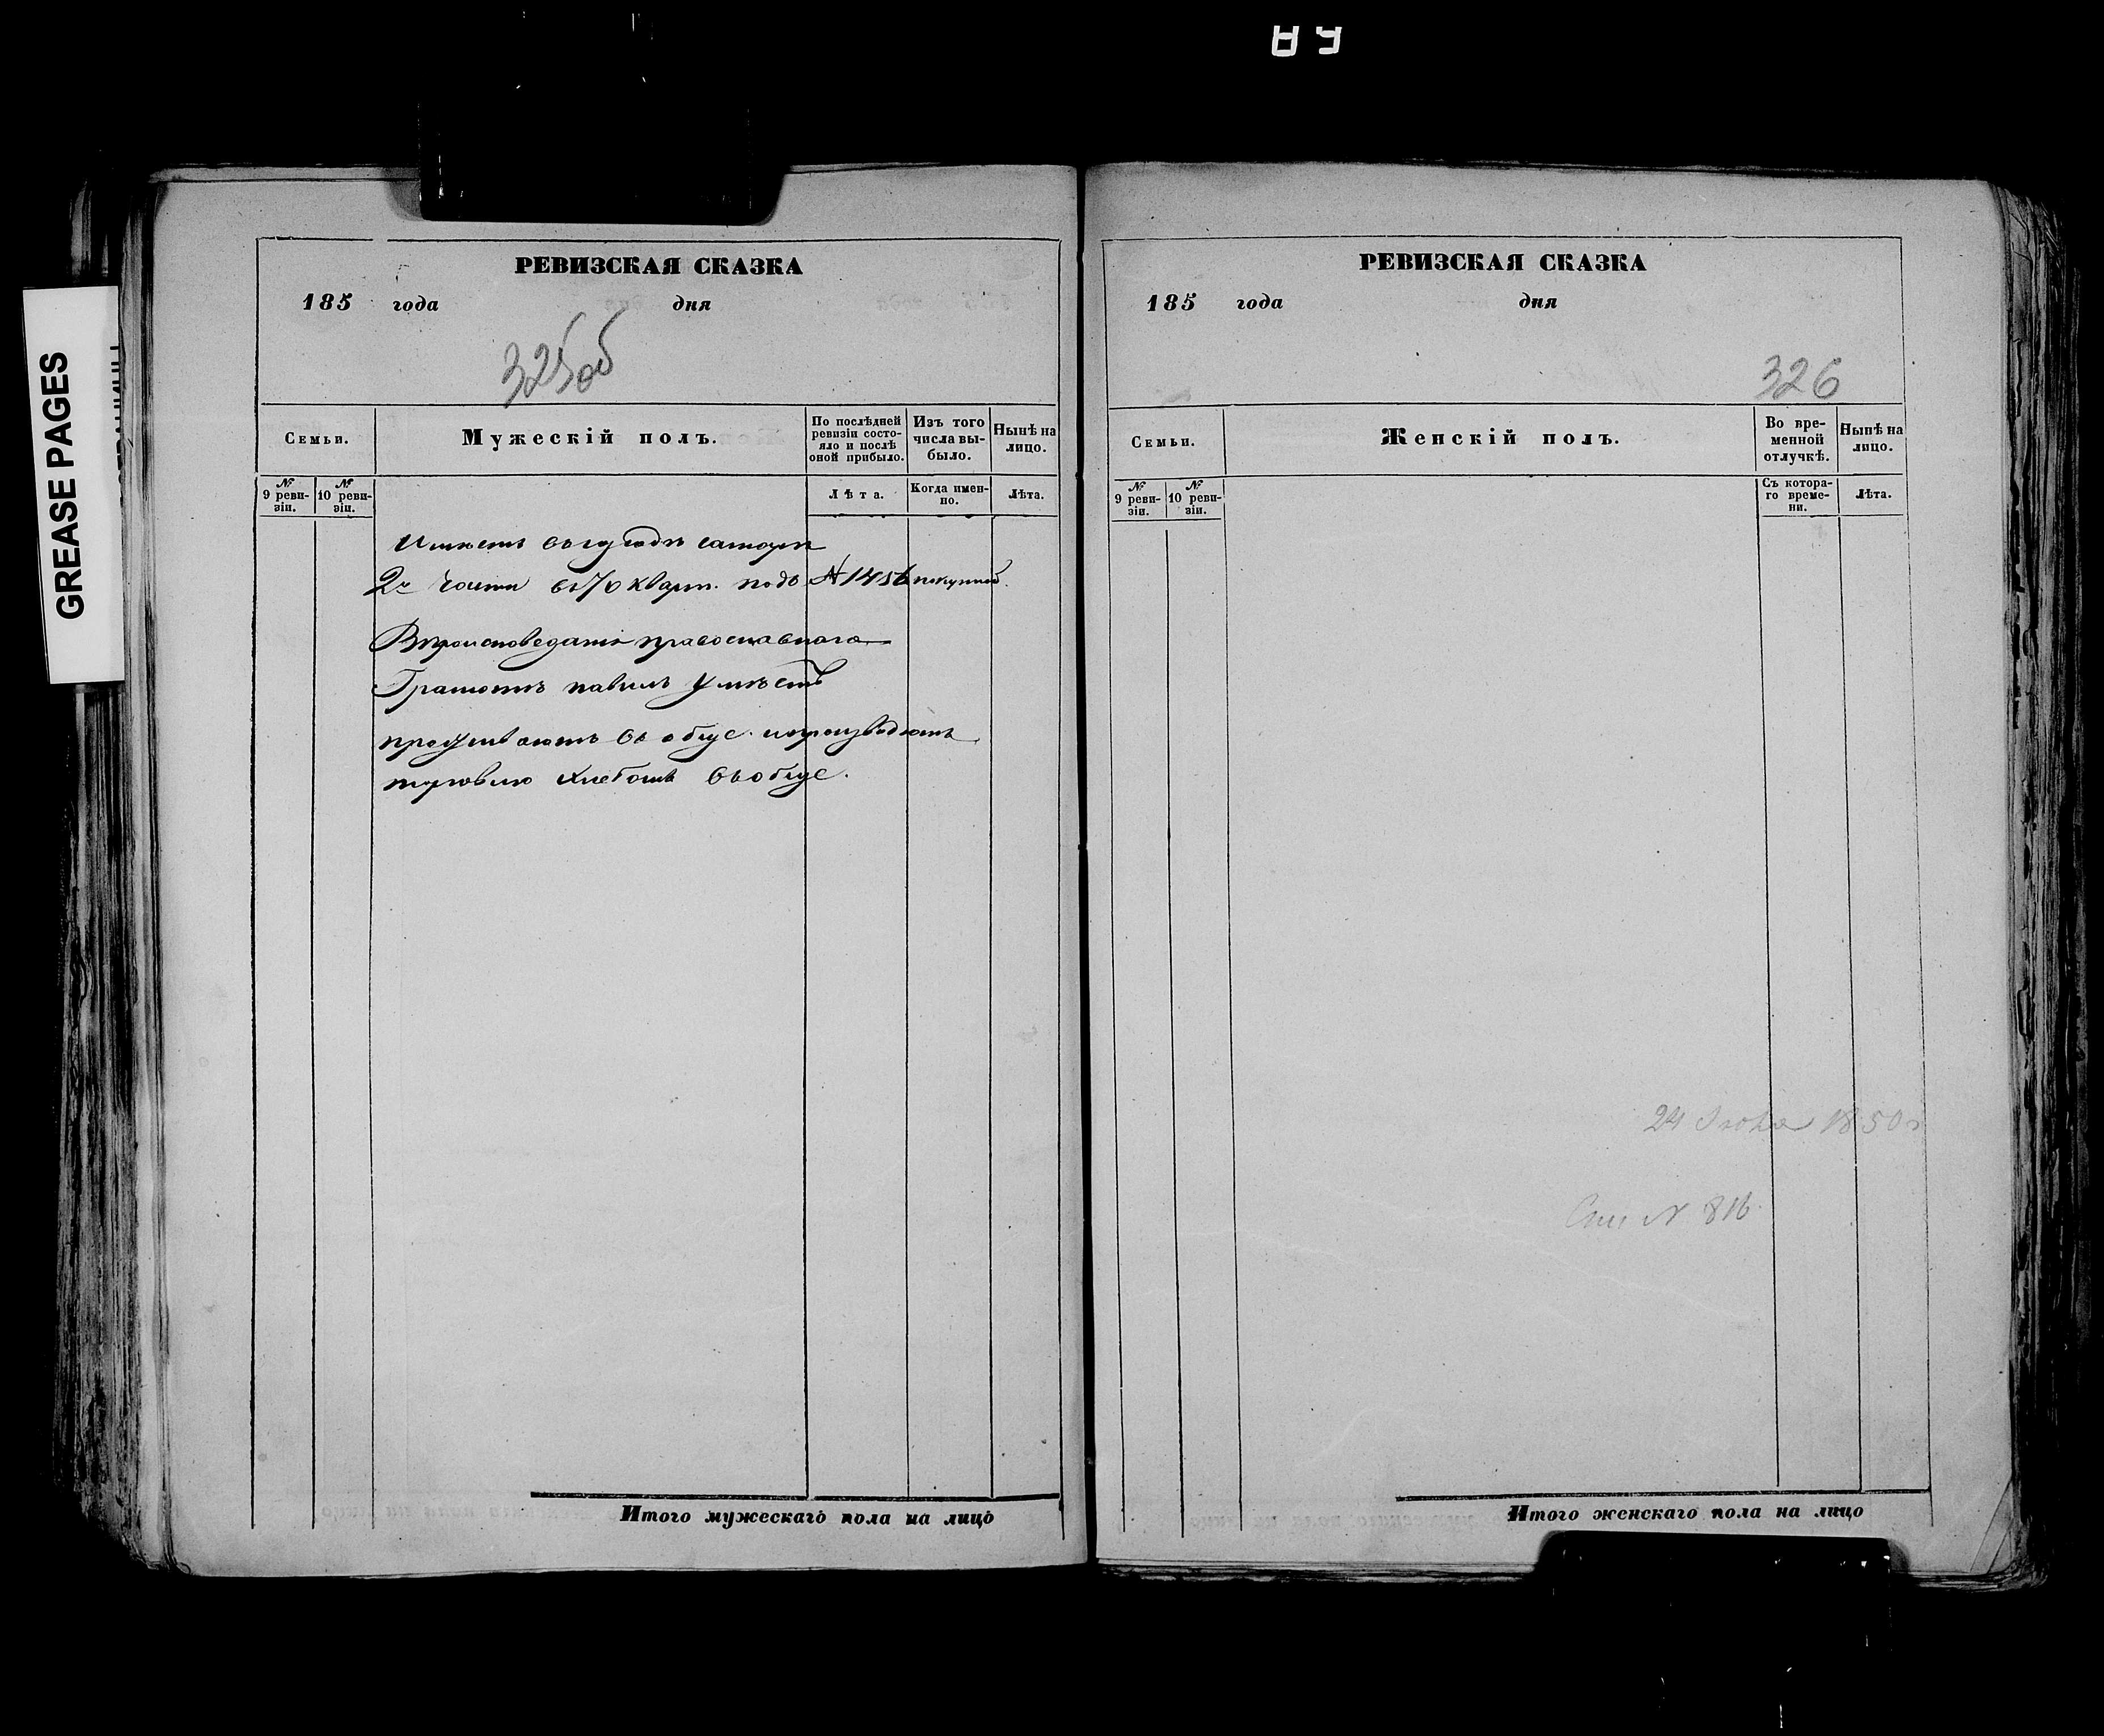 GREASE PAGES
РЕВИЗСКАЯ СКАЗКА
185 года дня
325об
Семьи.
Мужескій полъ.
По послѣдней ревизіи состояло и послѣ оной прибыло.
Изъ того числа выбыло.
Нынѣ на лицо.
№ 9 ревизіи.
№ 10 ревизіи.
Лѣта.
Когда именно.
Лѣта.
Имѣетъ
2й части въ 70 кварт. подъ №
православнаго
Грамотѣ умѣетъ
проживаютъ въ
торговлю хлебомъ
Итого мужескаго пола на лицо
РЕВИЗСКАЯ СКАЗКА
185 года дня
326
Семьи.
Женскій полъ.
Во временной отлучкѣ.
Нынѣ на лицо.
№ 9 ревизіи.
№ 10 ревизіи.
Съ котораго времени.
Лѣта.
24 1850 г
№ 816
Итого женскаго пола на лицо